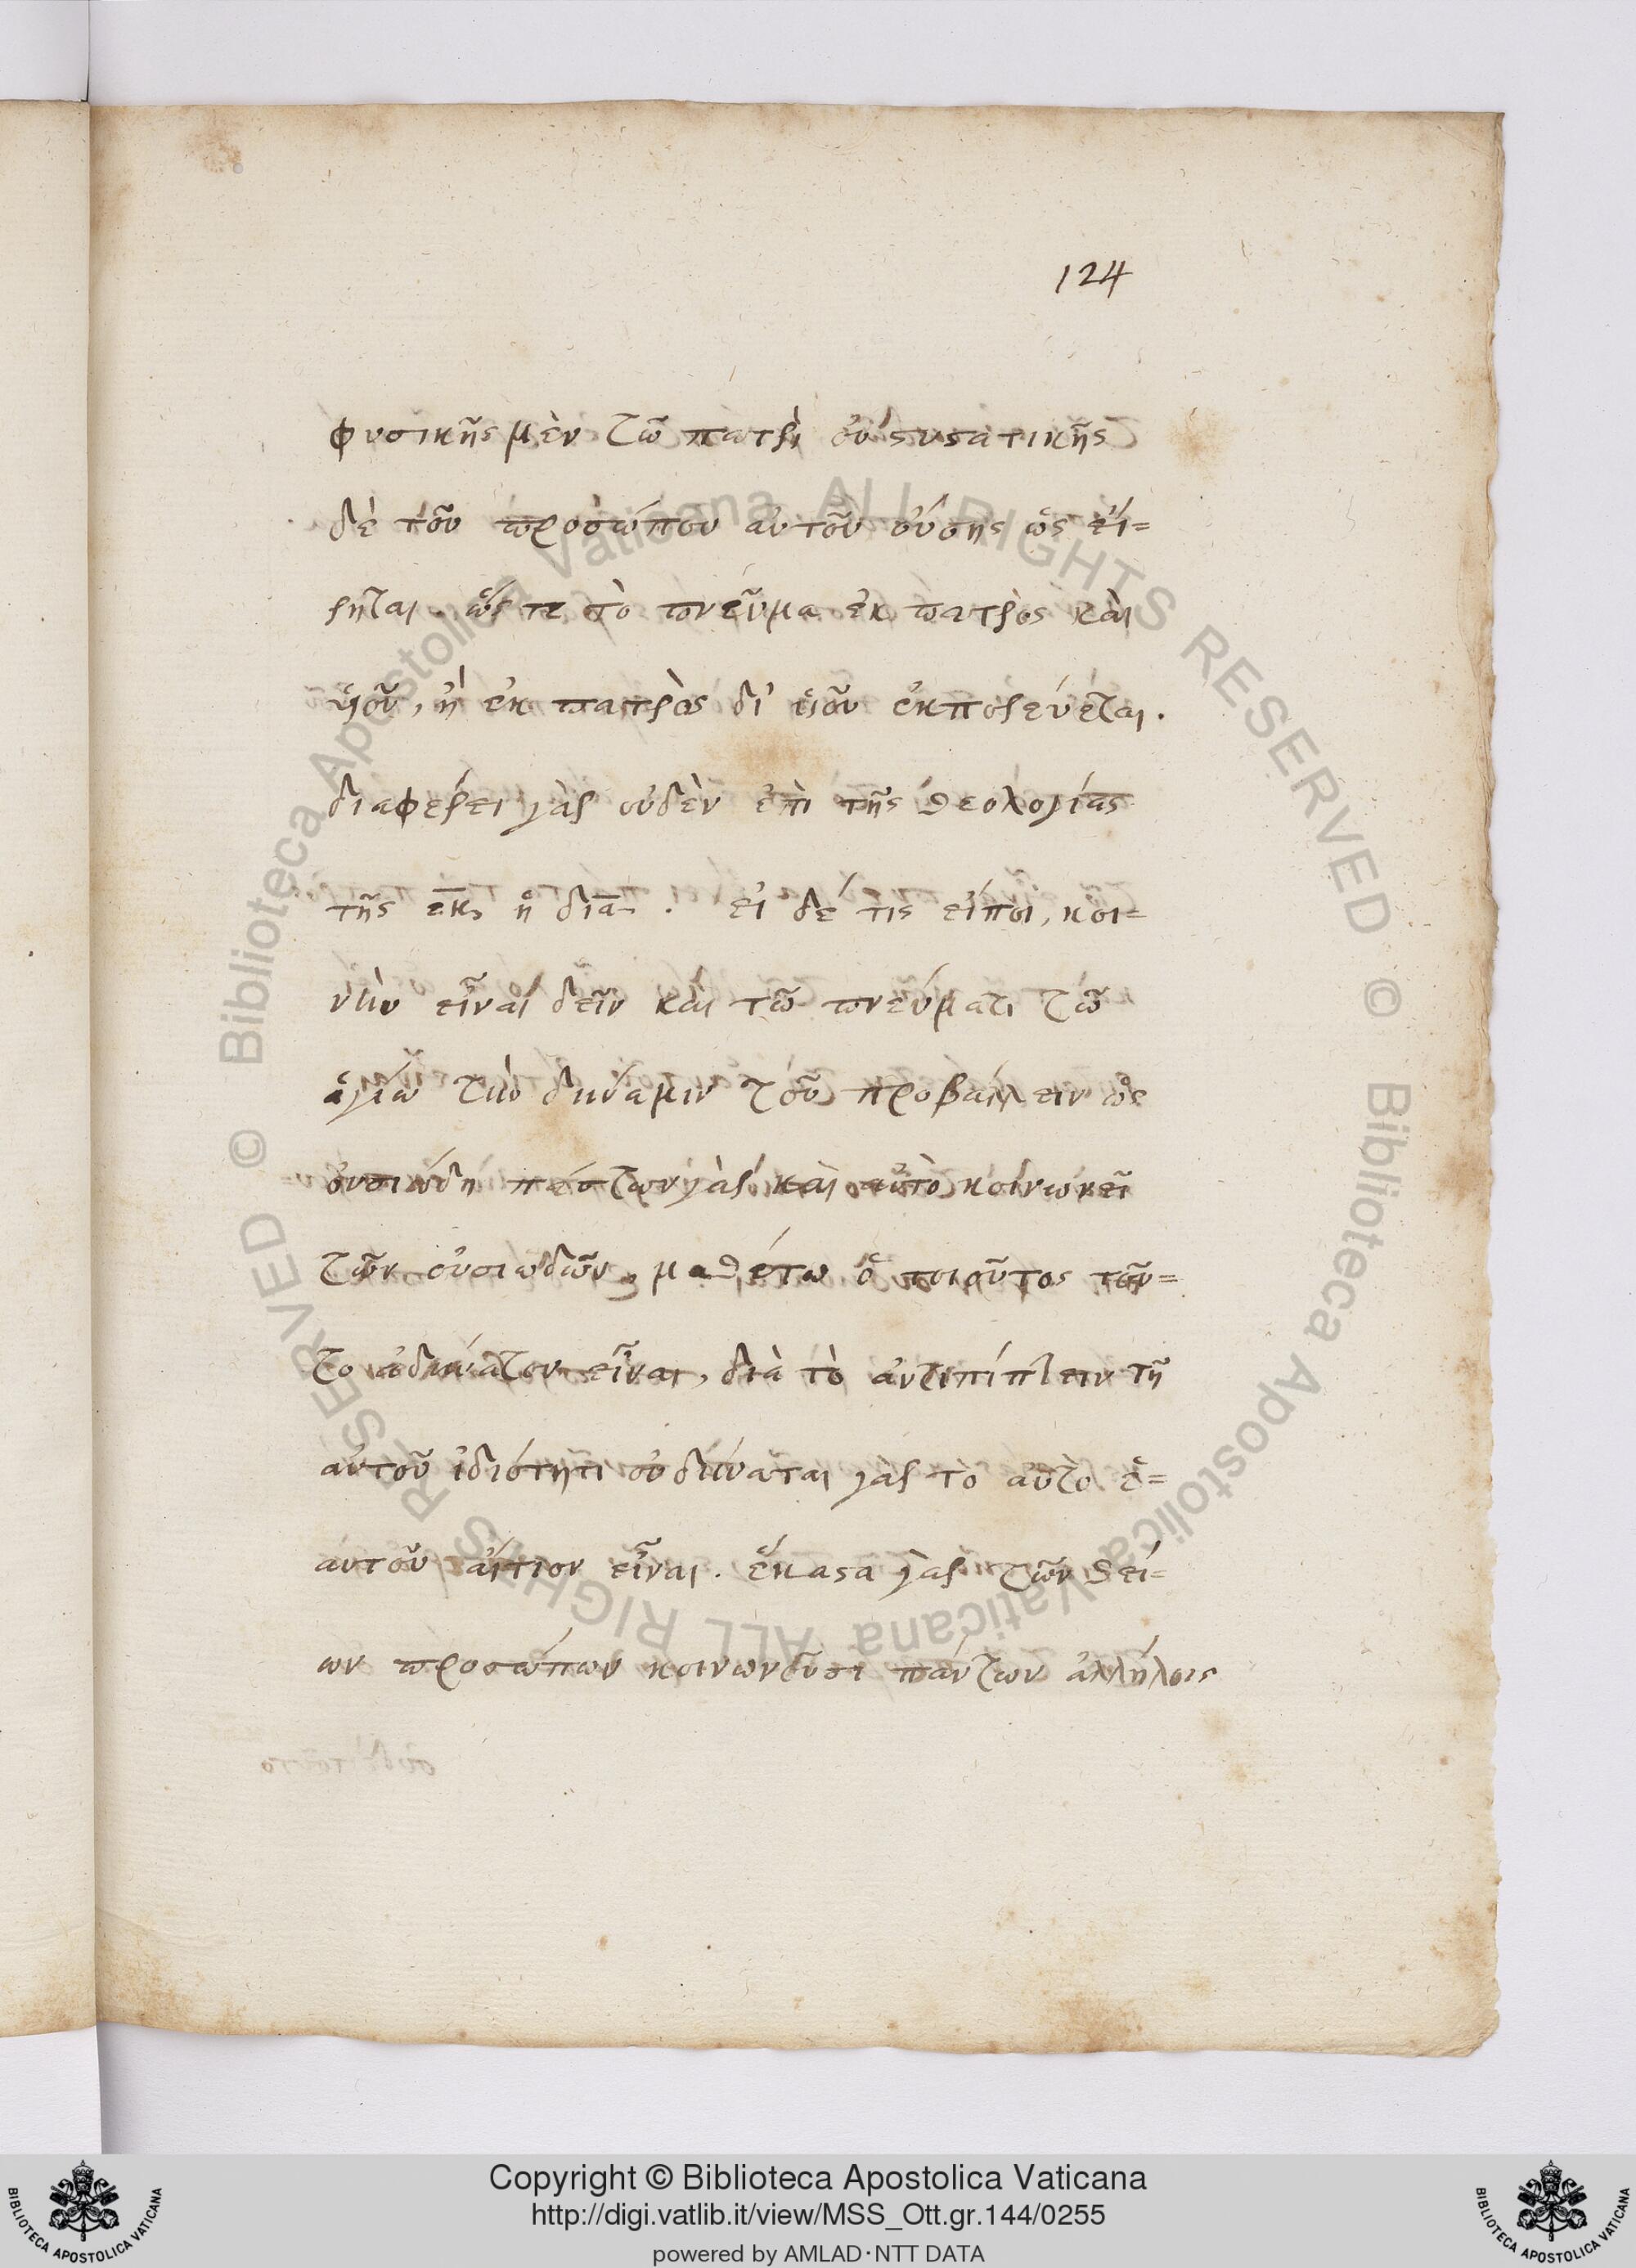 124
φυσικῆς μὲν τῶ πατρὶ οὐ συστατικῆς
δὲ τοῦ προσώπου αὐτοῦ οὔσης ὡς εἴ=
ρηται. ὥς τε τὸ πνεῦμα ἐκ πατρὸς καὶ
ὑιοῦ, ἢ ἐκ πατρὸς δι' ὑιοῦ ἐκπορεύεται.
διαφέρει γὰρ οὐδὲν ἐπὶ τῆς θεολογίας
τῆς ἐκ, ἡ διὰ. εἰ δέ τις εἴποι, κοι=
νὴν εἶναι δεῖν καὶ τῶ πνεύματι τῶ
ἁγίω τὴν δύναμιν τοῦ προβάλλειν ὡς
οὐσιώδη πάντων γὰρ καὶ αὐτὸ κοινωνεῖ
τῶν οὐσιωδῶν, μαθέτω ὁ τοιοῦτος τοῦ=
το ἀδύνατον εἶναι, διὰ τὸ ἀντιπίπτειν τῆ
αὐτοῦ ἰδιότητι οὐ δύναται γὰρ τὸ αὐτὸ ἑ=
αυτοῦ αἴτιον εἶναι. ἕκαστα γὰρ τῶν θεί=
ων προσώπων κοινωνοῦσι πάντων ἀλλήλοις
Copyright © Biblioteca Apostolica Vaticana
http://digi.vatlib.it/view/MSS_Ott.gr.144/0255
powered by AMLAD·NTT DATA
BIBLIOTECA APOSTOLICA VATICANA
BIBLIOTECA APOSTOLICA VATICANA
© Biblioteca Apostolica Vaticana ALL RIGHTS RESERVED © Biblioteca Apostolica Vaticana ALL RIGHTS RESERVED